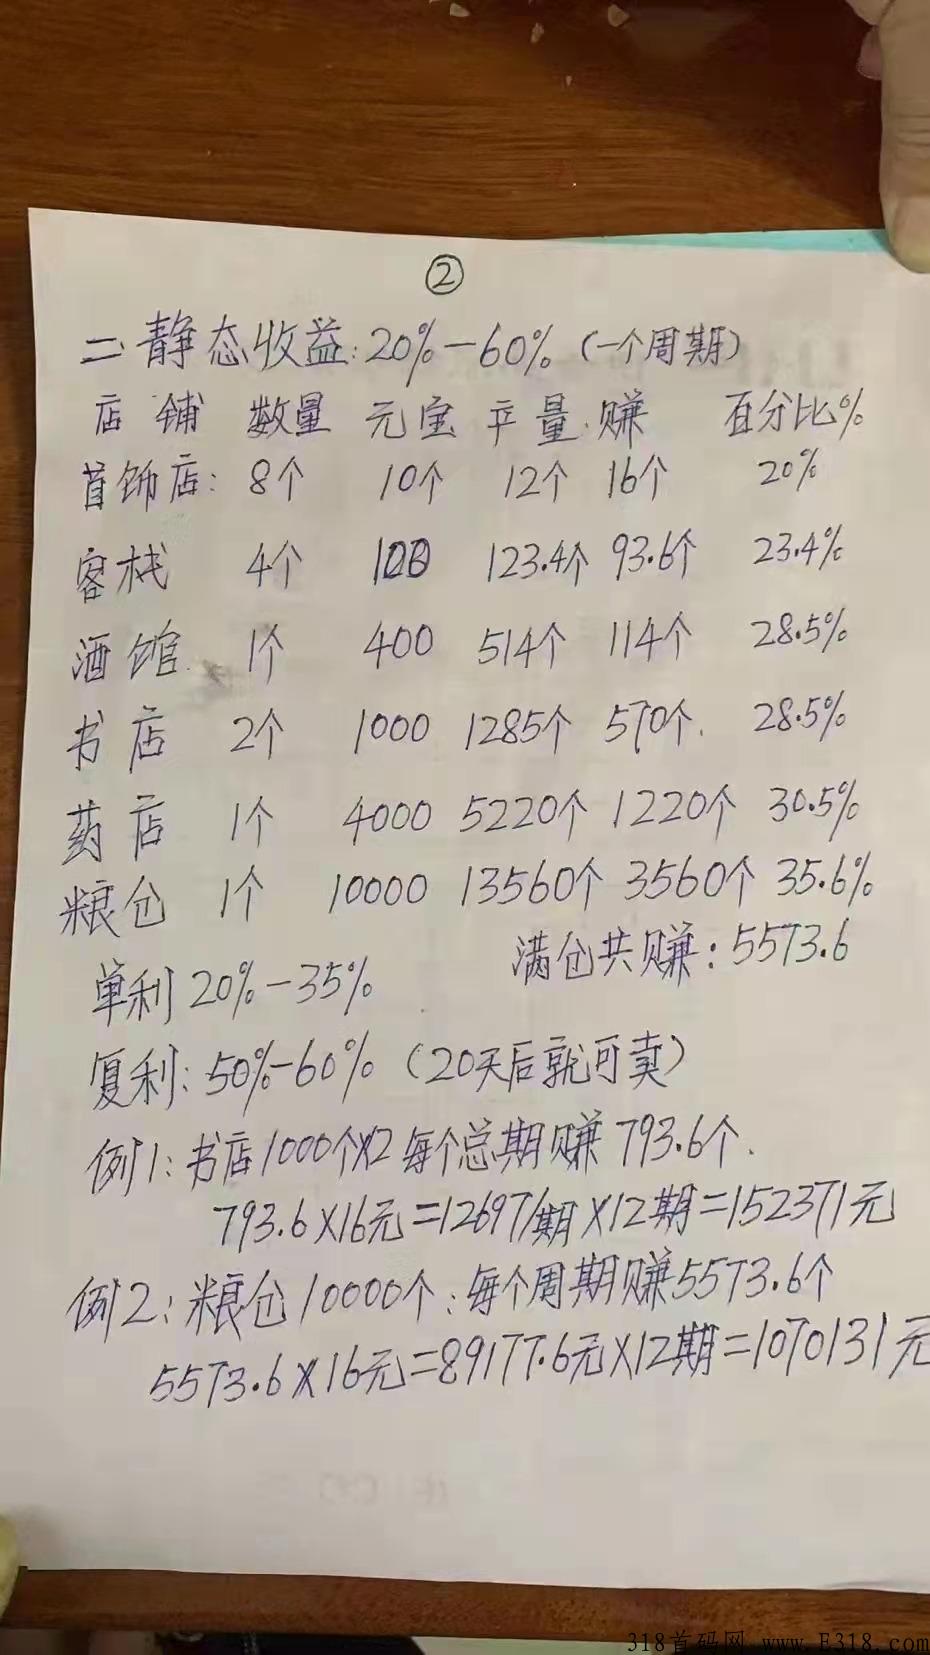 ②
二.静态收益:20%-60%(一个周期)
店铺 数量 元宝 产量.赚 百分比%
首饰店: 8个 10个 12个 16个 20%
客栈 4个 100 123.4个 93.6个 23.4%
酒馆. 1个 400 514个 114个 28.5%
书店 2个 1000 1285个 570个. 28.5%
药店 1个 4000 5220个 1220个 30.5%
粮仓 1个 10000 13560个 3560个 35.6%
满仓共赚:5573.6
单利20%-35%
复利:50%-60%(20天后就可卖)
例1:书店1000个X2每个总期赚793.6个.
793.6X16元=12697/期X12期=152371元
例2:粮仓10000个:每个周期赚5573.6个
5573.6X16元=89177.6元X12期=1070131元
318首码网 www.E318.com